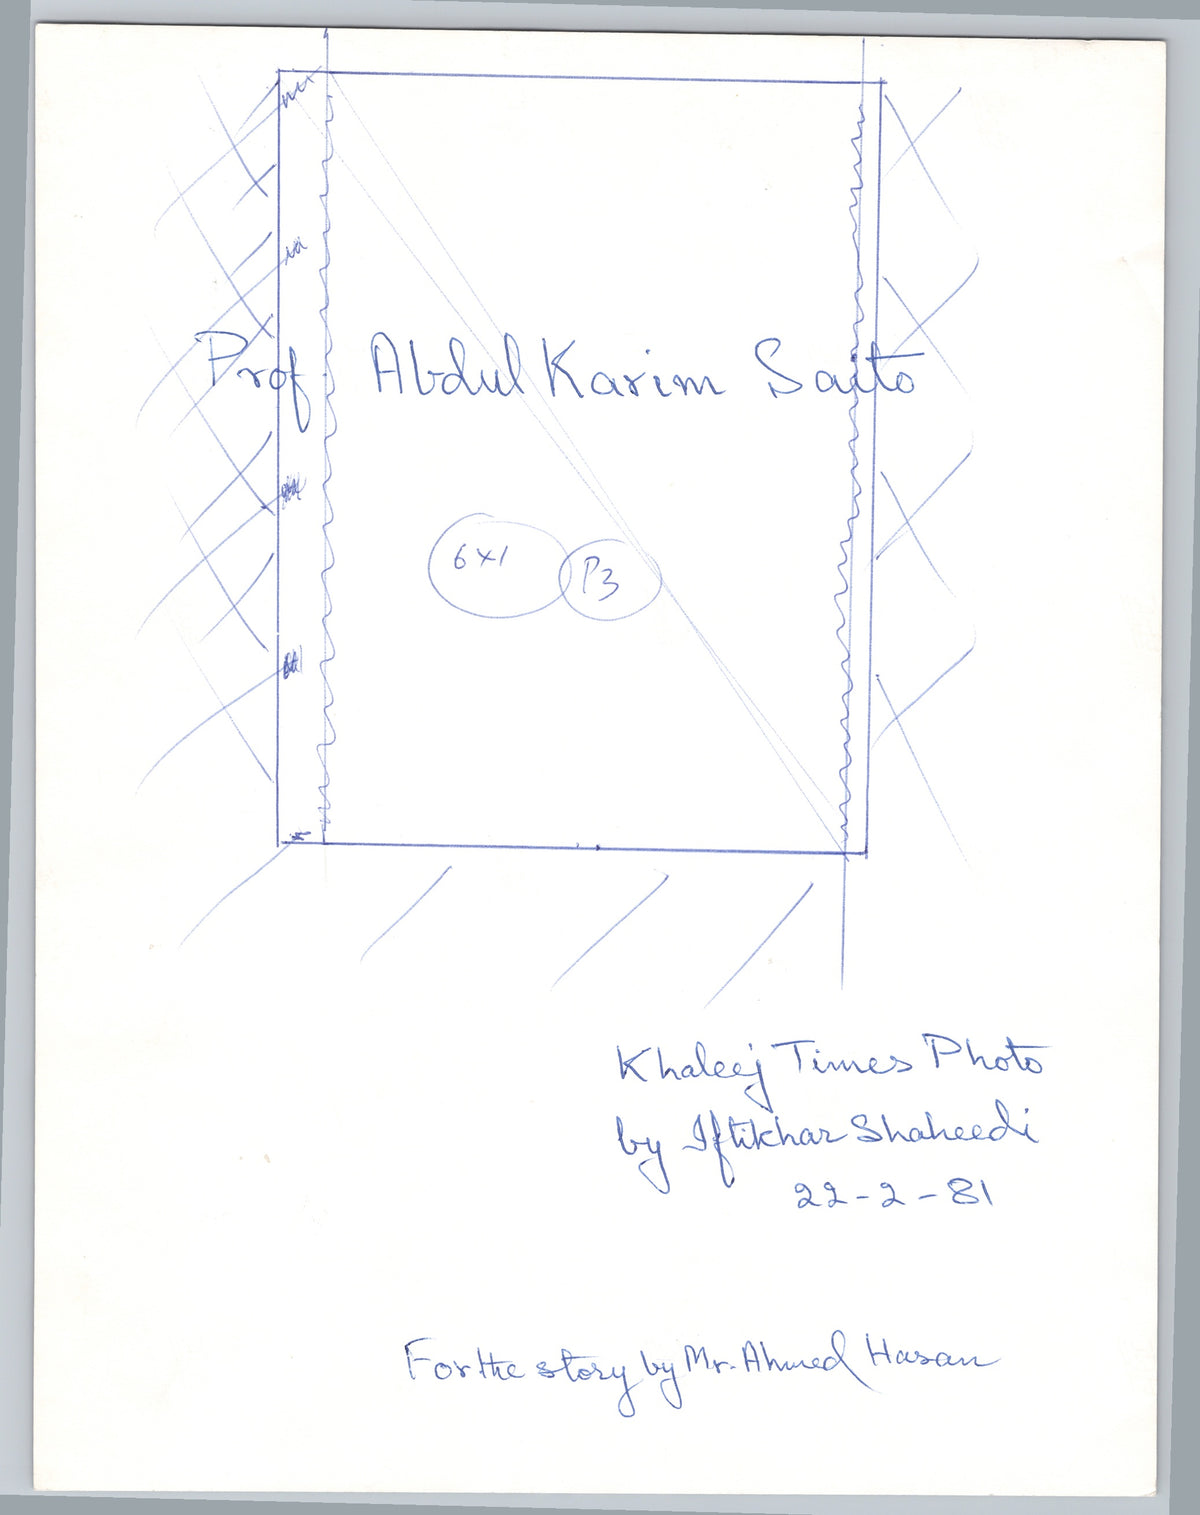 Prof. Abdul Karim Saito
6x1 P3
Khaleej Times Photo
by Iftikhar Shaheedi
22-2-81
For the story by Mr. Ahmed Hasan